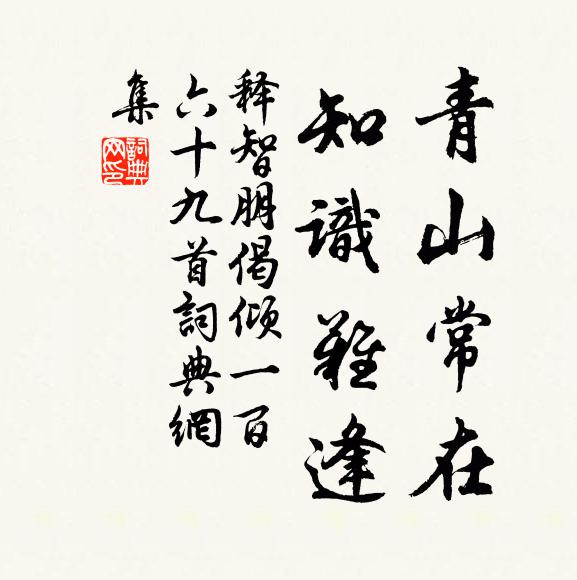 青山常在
知識難逢
释智朋偈倾一百
六十九首詞典網
集
詞典網印